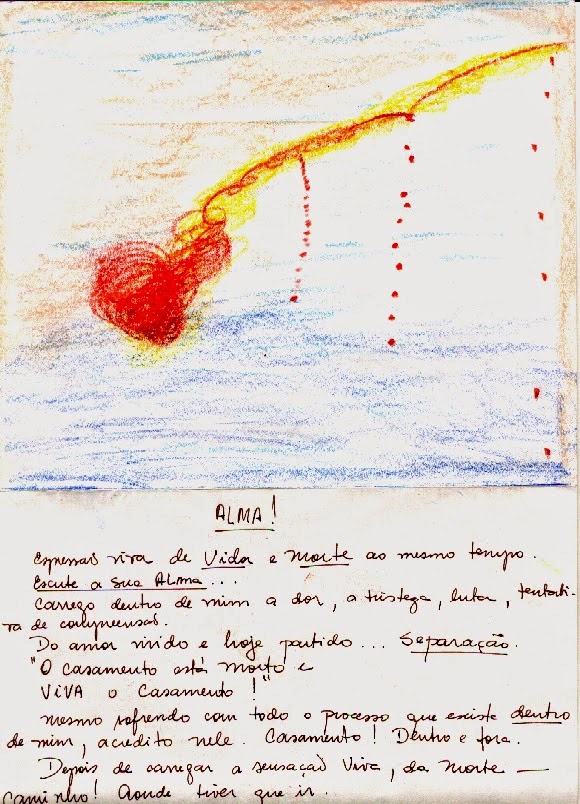 ALMA!
Expressão viva de Vida e Morte ao mesmo tempo.
Escute a sua Alma...
Carrego dentro de mim a dor, a tristeza, luta, tentati-
va de compreensão.
Do amor vivido e hoje partido... Separação.
"O casamento está morto e
VIVA o Casamento!"
mesmo sofrendo com todo o processo que existe dentro
de mim, acredito nele. Casamento! Dentro e fora.
Depois de carregar a sensação Viva, da morte —
Caminho! Aonde tiver que ir.